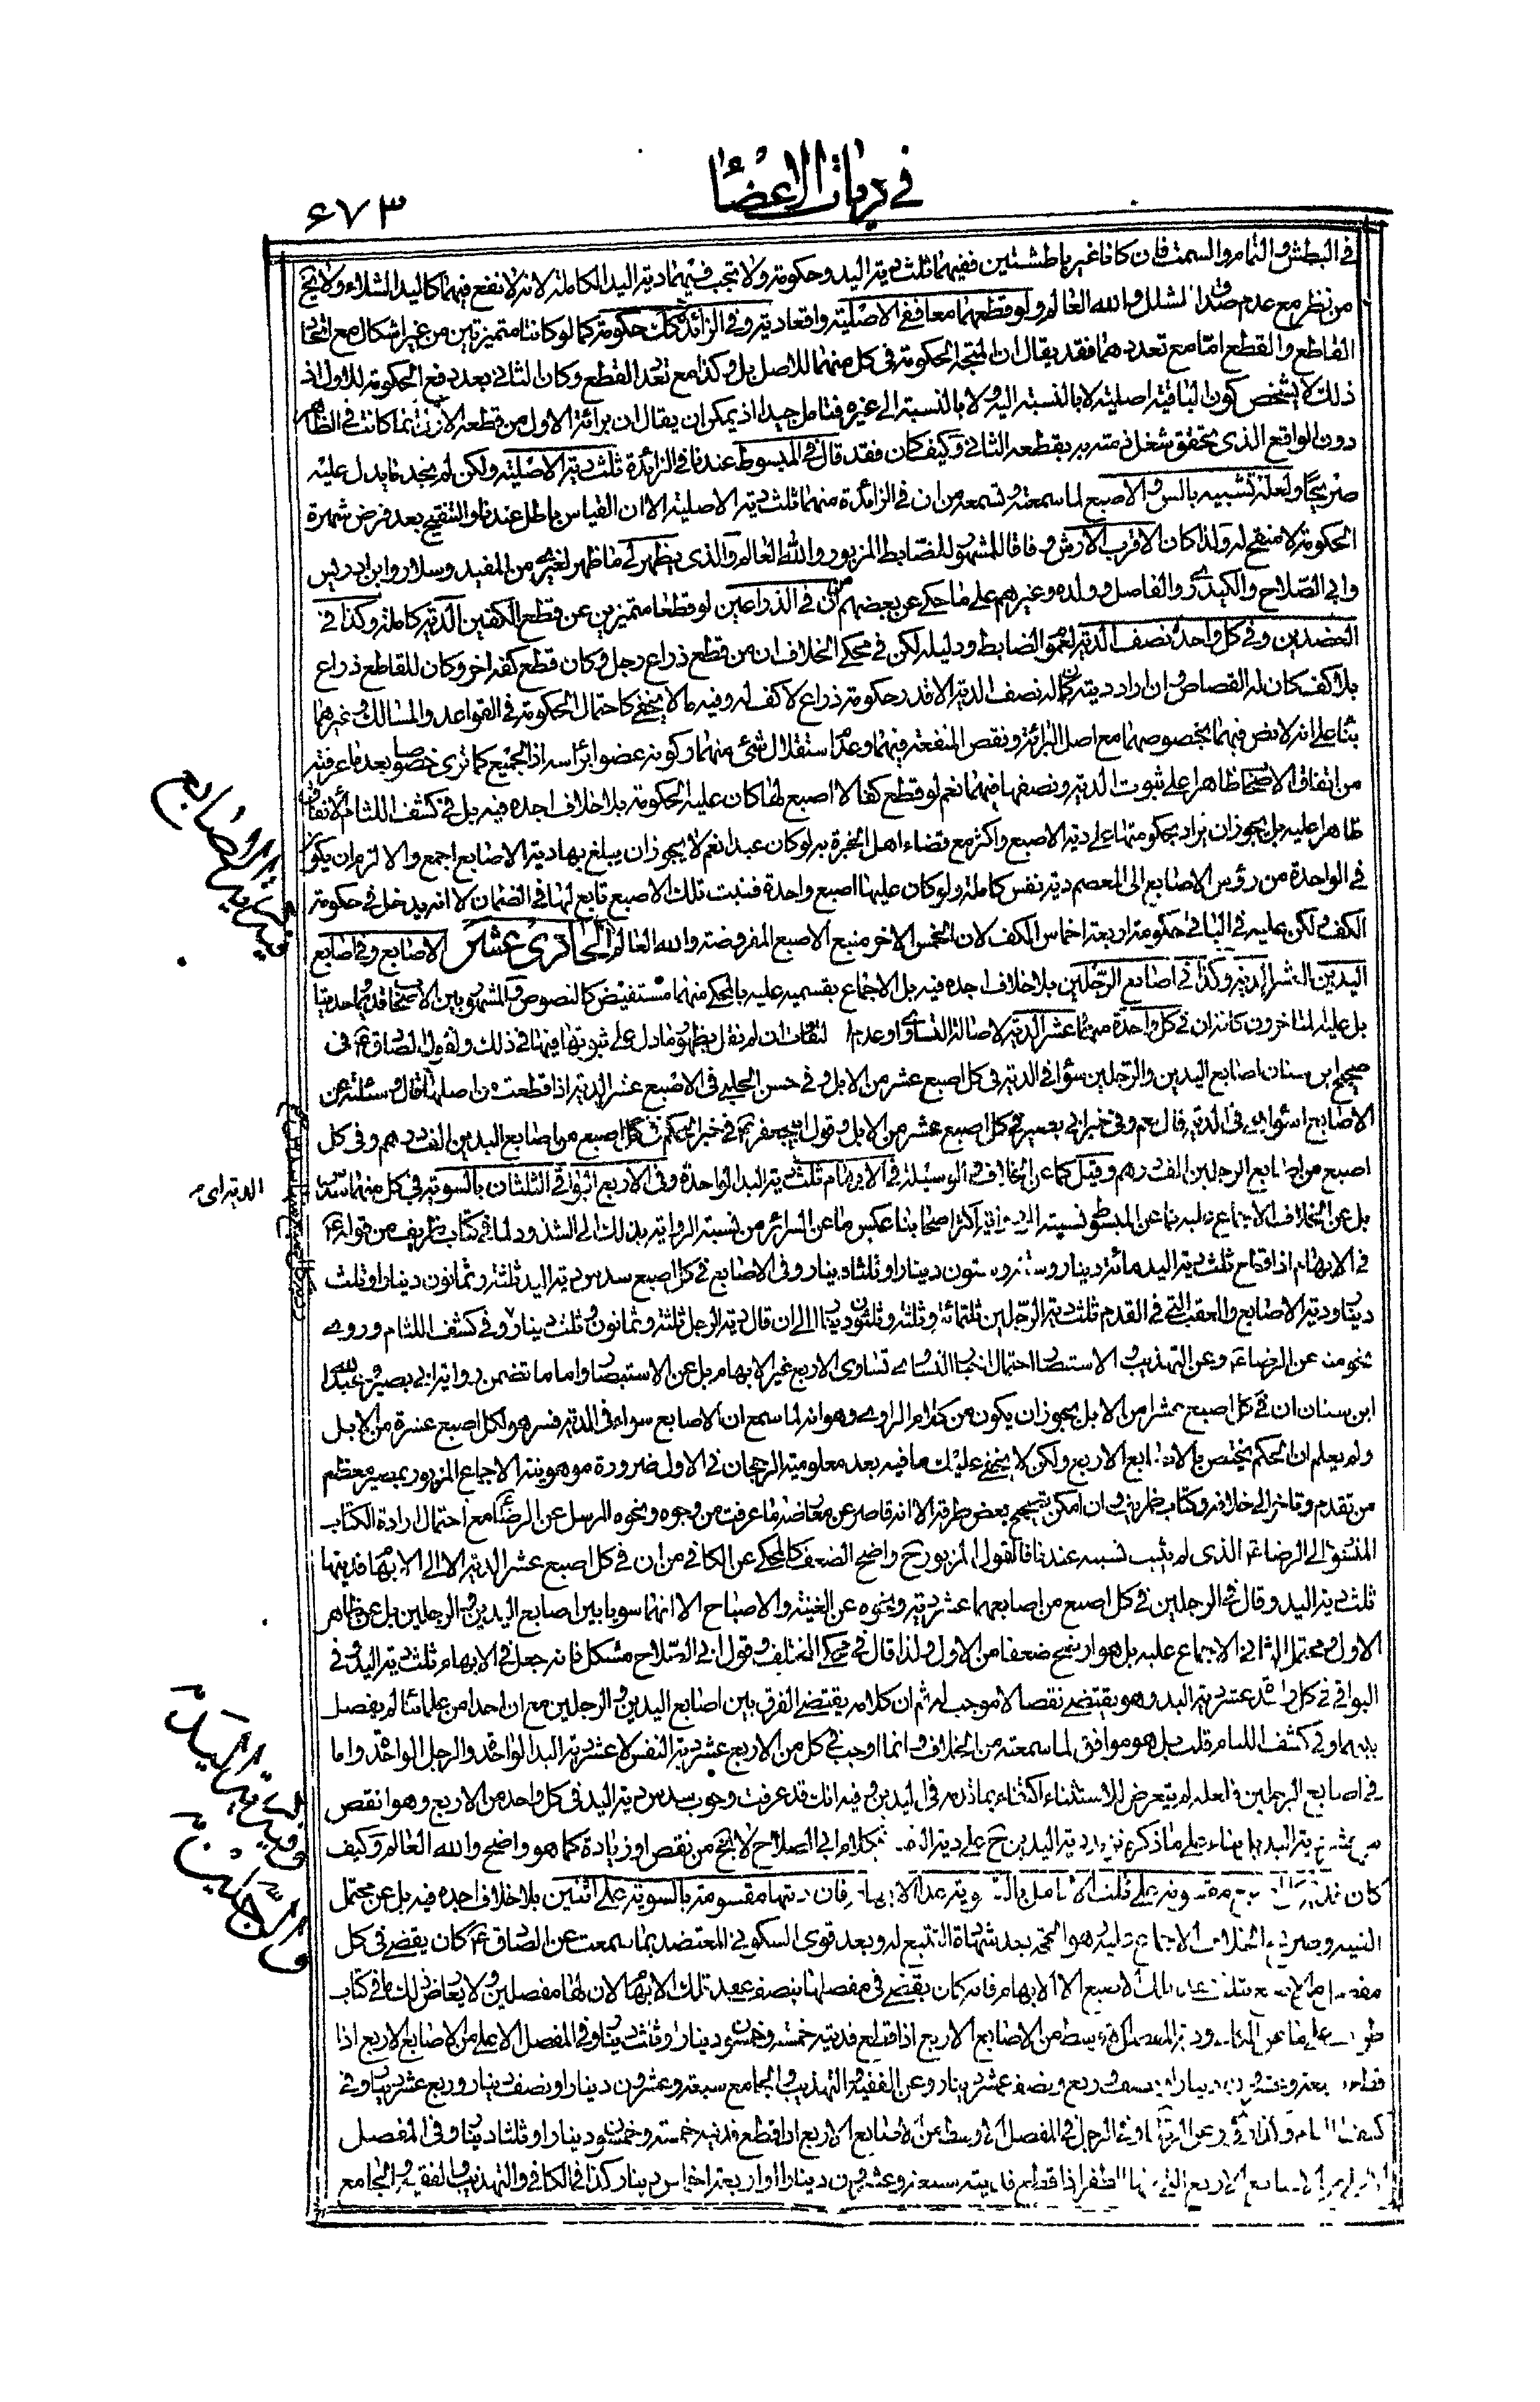 في ديات الاعضاء
۶۷۳
في البطش والتمام والسمت فان كانا غير باطشتين ففيهما ثلث دية اليد وحكومة ولا تجب فيهما دية اليد الكاملة لانه لا نفع فيهما كاليد الشلاء ولا يخ
من نظر مع عدم صدق الشلل والله العالم ولو قطعهما معا ففي الاصلية واقعا دية وفي الزائدة كك حكومة كما لو كانتا متميزتين من غير اشكال مع اتحا
القاطع والقطع امّا مع تعددهما فقد يقال ان المتجه الحكومة في كل منهما للاصل بل وكذا مع تعدد القطع وكان الثاني بعد دفع الحكومة للاول اذ
ذلك لا يشخص كون الباقية اصلية لا بالنسبة اليه ولا بالنسبة الى غيره فتامل جيدا اذ يمكن ان يقال ان برائة الاول من قطعه الازيد انما كانت في الظاهر
دون الواقع الذى تحقق شغل ذمته به بقطعه الثاني وكيف كان فقد قال في المبسوط عندنا في الزائدة ثلث دية الاصلية ولكن لم نجد ما يدل عليه
صريحا ولعله تشبيه بالسن والاصبع لما سمعته وتسمعه من ان في الزائدة منهما ثلث دية الاصلية الا ان القياس باطل عندنا والتنقيح بعد فرض شهرة
الحكومة لا منقح له ولذا كان الاقرب الارش وفاقا للمشهور للضابط المزبور والله العالم والذى يظهر لي ما ظهر لغيره من المفيد وسلار وابن ادريس
وابي الصلاح والكيدرى والفاضل وولده وغيرهم على ما حكى عن بعضهم من ان في الذراعين لو قطعا متميزين عن قطع الكفين الدية كاملة وكذا في
العضدين وفي كل واحد نصف الدية لعموم الضابط ودليله لكن في محكى الخلاف ان من قطع ذراع رجل وكان قطع كفه اخر وكان للقاطع ذراع
بلا كف كان له القصاص وان اراد ديته كان له نصف الدية الا قدر حكومة ذراع لا كف له وفيه ما لا يخفى كاحتمال الحكومة في القواعد والمسالك وغيرهما
بناء على انه لا نص فيهما بخصوصهما مع اصل البرائة ونقص المنفعة فيهما وعدم استقلال شئ منهما وكونه عضوا براسه اذ الجميع كما ترى خصوصا بعد ما عرفته
من اتفاق الاصحاب ظاهرا على ثبوت الدية ونصفها فيهما نعم لو قطع كفا لا اصبع لها كان عليه الحكومة بلا خلاف اجده فيه بل في كشف اللثام الاتفاق
ظاهرا عليه بل يجوز ان يراد بحكومتها على دية الاصبع واكثر مع قضاء اهل الخبرة به لو كان عبدا نعم لا يجوز ان يبلغ بها دية الاصابع اجمع والا لزم ان يكون
في الواحدة من رؤس الاصابع الى المعصم دية نفس كاملة ولو كان عليها اصبع واحدة فنبت تلك الاصبع تابع لها في الضمان لا انه يدخل في حكومة
الكف لكن عليه في الباقي حكومة اربعة اخماس الكف لان الخمس الاخر منبع الاصبع المفروضة والله العالم الحادى عشر الاصابع وفي اصابع
اليدين العشر الدية وكذا في اصابع الرجلين بلا خلاف اجده فيه بل الاجماع بقسميه عليه بل المحكي منهما مستفيض كالنصوص والمشهور بين الاصحاب قديما وحديثا
بل عليه المتاخرون كافة ان في كل واحدة منهما عشر الدية لاصالة التساوى وعدم التفات ان لم نقل بظهور ما دل على ثبوتها فيها في ذلك ولقول الصادق ع في
صحيح ابن سنان اصابع اليدين والرجلين سؤا في الدية في كل اصبع عشر من الابل وفي حسن الحلبي في الاصبع عشر الدية اذا قطعت من اصلها قال وسئلته عن
الاصابع اسواء هي في الدية قال نعم وفي خبر ابي بصير في كل اصبع عشر من الابل وقول ابي جعفر ع في خبر الحكم في كل اصبع من اصابع اليدين الف درهم وفي كل
اصبع من اصابع الرجلين الف درهم وقيل كما عن الخلاف والوسيلة في الابهام ثلث دية اليد الواحدة وفي الاربع البواقي الثلثان بالسوية في كل منهما سدس
بل عن الخلاف الاجماع عليه بل عن المبسوط نسبته الى رواية اكثر اصحابنا عكس ما عن السرائر من نسبة الرواية بذلك الى الشذوذ لما في كتاب ظريف من قوله ع
في الابهام اذا قطع ثلث دية اليد مائة دينار وستة وستون دينارا وثلثا دينار وفي الاصابع في كل اصبع سدس دية اليد ثلثة وثمانون دينارا وثلث
دينار ودية الاصابع والعقب التي في القدم ثلث دية الرجلين ثلثمائة وثلثة وثلثون دينارا الى ان قال دية الرجل ثلثة وثمانون وثلث دينار وفي كشف اللثام وروى
نحو منه عن الرضا ع وعن التهذيب والاستبصار احتمال اخبار التساوى تساوى الاربع غير الابهام بل عن الاستبصار واما ما تضمن رواية ابي بصير وعبد الله
ابن سنان ان في كل اصبع عشرا من الابل يجوز ان يكون من كلام الراوى وهو انه لما سمع ان الاصابع سواء في الدية فسر هو لكل اصبع عشرة من الابل
ولم يعلم ان الحكم يختص بالاصابع الاربع ولكن لا يخفى عليك ما فيه بعد معلومية الرجحان في الاول ضرورة موهونية الاجماع المزبور بمصير معظم
من تقدم وتاخر الى خلافه وكتاب ظريف وان امكن تصحيح بعض طرقه الا انه قاصر عن معارضة ما عرفت من وجوه ونحوه المرسل عن الرضا ع مع احتمال ارادة الكتاب
المنسوب الى الرضا ع الذى لم يثبت نسبه عندنا فالقول المزبور ح واضح الضعف كالمحكي عن الكافي من ان في كل اصبع عشر الدية الا الى الابهام فديتها
ثلث دية اليد وقال في الرجلين في كل اصبع من اصابعهما عشر دية ونحوه عن الغنية والاصباح الا انهما سويا بين اصابع اليدين والرجلين بل عن ظاهر
الاول ومحتمل الثاني الاجماع عليه بل هو اوضح ضعفا من الاول ولذا قال في محكي المختلف وقول ابي الصلاح مشكل فانه جعل في الابهام ثلث دية اليد وفي
البواقي في كل واحد عشر دية اليد وهو يقتضى نقصا لا موجب له ثم ان كلامه يقتضى الفرق بين اصابع اليدين والرجلين مع ان احدا من علمائنا لم يفصل
بينهما وفي كشف اللثام قلت بل هو موافق لما سمعته من الخلاف وانما اوجب في كل من الاربع عشر دية النفس لا عشر دية اليد الواحدة والرجل الواحدة واما
في اصابع الرجلين فلعله لم يتعرض للاستثناء اكتفاء بما قدمه في اليدين وفيه انك قد عرفت وجوب سدس دية اليد في كل واحد من الاربع وهو انقص
من عشر دية اليد بناء على ما ذكره دية اليدين ح على دية النفس فكلام ابي الصلاح لا يخ من نقص او زيادة كما هو واضح والله العالم وكيف
كان فدية كل اصبع مقسومة على ثلث الانامل بالسوية عدا الابهام فان ديتها مقسومة بالسوية على اثنين بلا خلاف اجده فيه بل عن محتمل
الغنية وصريح الخلاف الاجماع عليه هو الحجة بعد شهادة التتبع له وبعد قوى السكوني المعتضد بما سمعت عن الصادق ع كان يقضى في كل
مفصل من الاصابع بثلث عقل تلك الاصبع الا الابهام فانه كان يقضى في مفصلها بنصف عقد تلك الابهام لان لها مفصلين ولا يعارض ذلك ما في كتاب
ظريف على ما عن الكافي ودية المفصل الاوسط من الاصابع الاربع اذا قطع فديته خمسة وخمسون دينارا وثلث دينار وفي المفصل الاعلى من الاصابع الاربع اذا
قطع سبعة وعشرون دينارا ونصف وربع ونصف عشر دينار وعن الفقيه والتهذيب والجامع سبعة وعشرون دينارا ونصف دينار وربع عشر دينار وفي
كشف اللثام وكذا روى عن الرضا ع وفي الرجل في المفصل الاوسط من الاصابع الاربع اذا قطع فديته خمسة وخمسون دينارا وثلثا دينار وفي المفصل
الاعلى من الاصابع الاربع التي فيها الظفر اذا قطع فديته سبعة وعشرون دينارا واربعة اخماس دينار كذا في الكافي والتهذيب والفقيه والجامع
في دية الاصابع
الدية اى